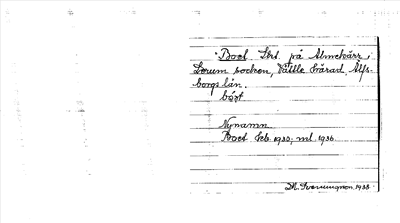 Boet. Lht. på Almekärr i
Lerum socken, Vättle härad, Älfs-
borgs län.
bóət
Nynamn.
Boet feb. 1930, ml. 1936.
M. Svenungson 1938.